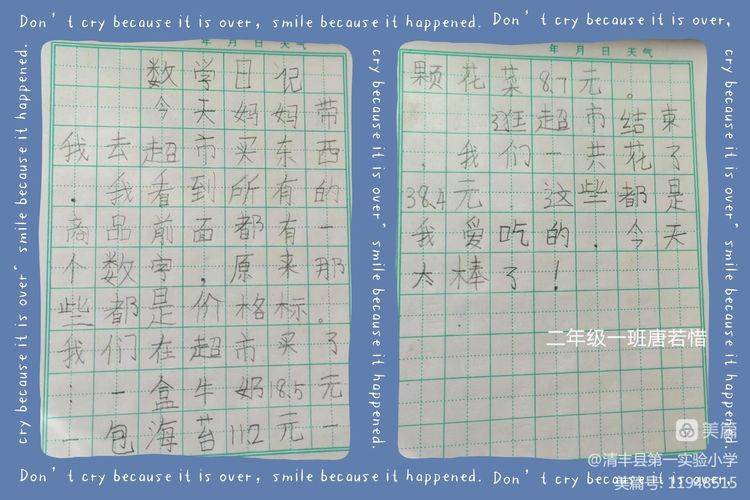 Don't cry because it is over, smile because it happened. Don't cry because it is over,
cry because it is over, smile because it happened.
年 月 日 天气
数学日记
今天妈妈带
我去超市买东西
．我看到所有的
商品前面都有一
个数字，原来那
些都是价格标。
我们在超市买了
：一盒牛奶18.5元
一包海苔11.2元一
年 月 日 天气
颗花菜8.7元。
逛超市结束
，我们一共花了
38.4元．这些都是
我爱吃的．今天
太棒了！
二年级一班唐若惜
cry because it is over, smile because it happened.
cry because it is over, smile because it happened.
美篇
@清丰县第一实验小学
Don't cry because it is over, smile because it happened. Don't cry because it is over,